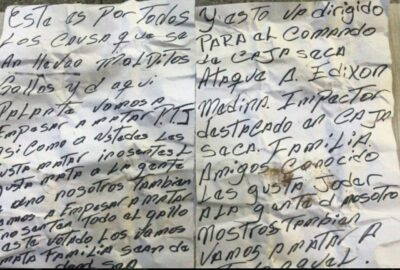 Este es POR TODOS
LOS CAUSA que se
An llevao MALDITOS
GALLOS y d aqui
PALANTE VAMOS A
EMPESAR A MATAR PTJ
ASi COMO A Ustedes Les
gusta MATAR inosentes L
gusta MATA A LA gente
nosotros tambien
VAMOS A EMPESAR A MATAR
TODO el GALLO
este votado Los VAMOS
MATA FAMiLiA SEAN de
y esto va dirigido
PARA el COMANDO
de CAJA SECA
Ataque A. EDiXON
Medina. Inspector
destacado en CAJA
SECA. FAMiLiA.
Amigos Conocido
Les gusta Joder
A LA gente d nosotro
Nostros tambien
VAMOS A MATAR A